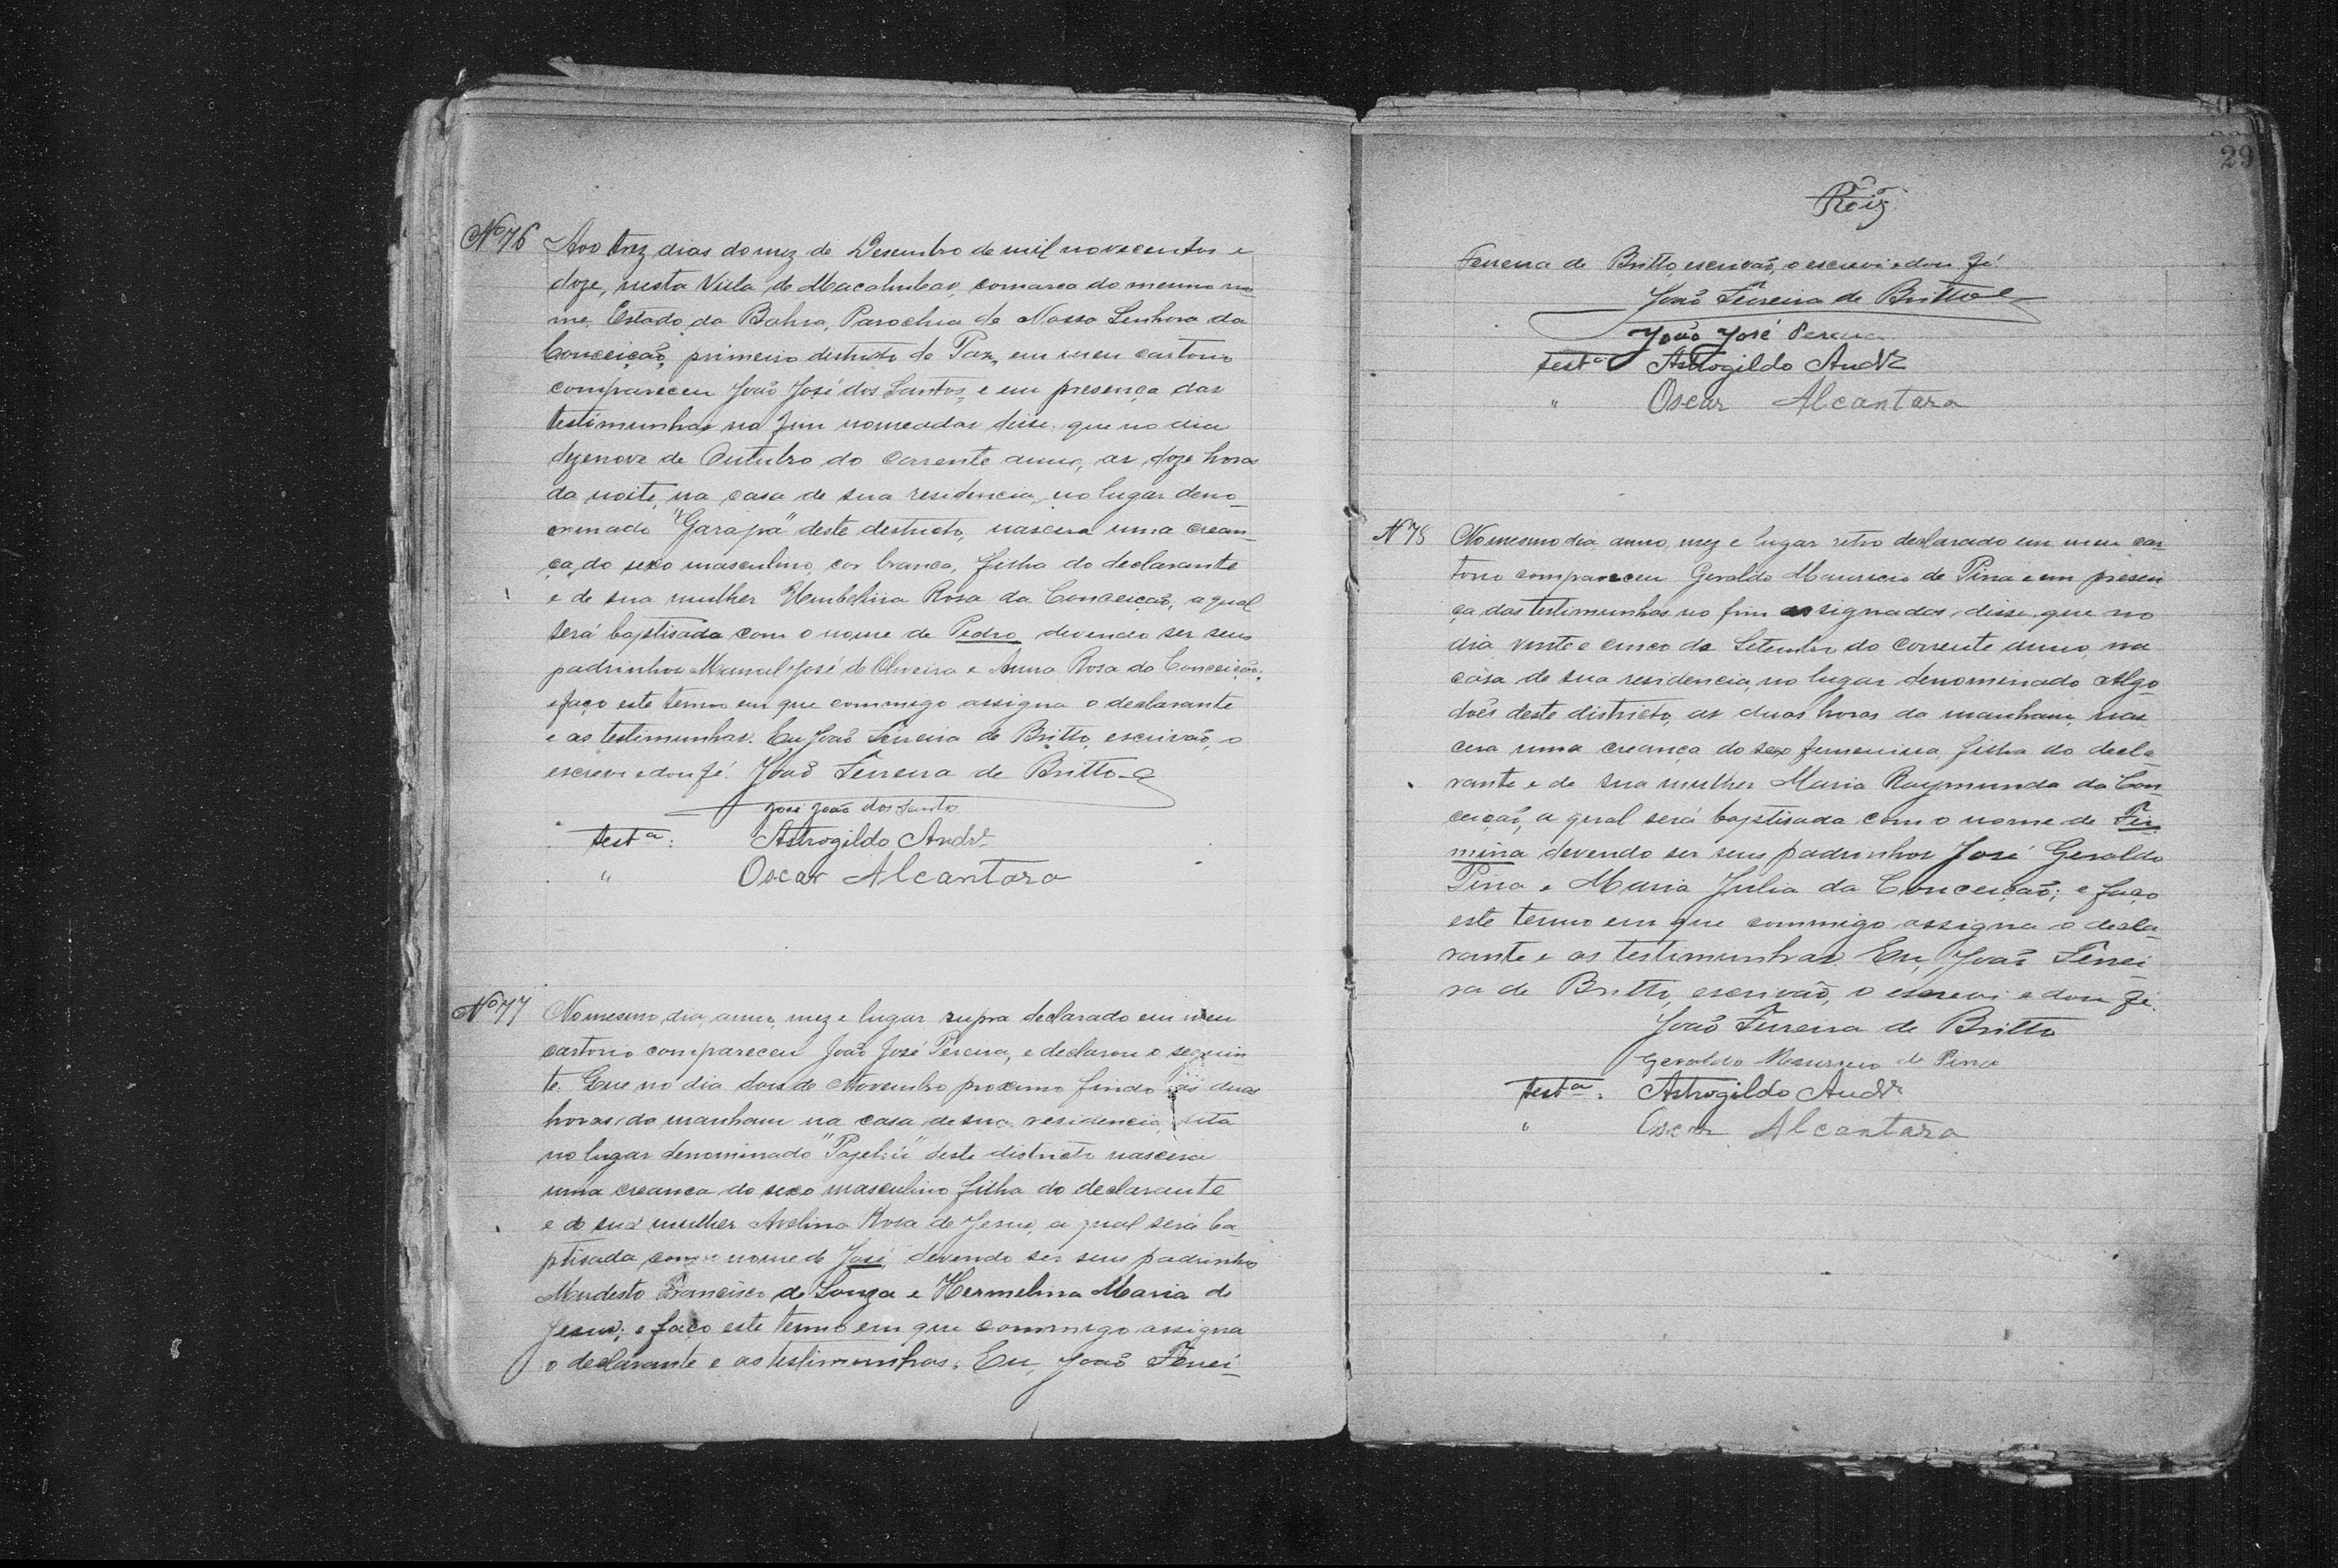 Nº 76
Aos trez dias do mez de Desembro de mil novecentos e
doze, nesta Villa de Macahubas, comarca do mesmo no-
me, Estado da Bahia, Parochia de Nossa Senhora da
Conceição, primeiro districto de Paz, em meu cartorio
compareceu João José dos Santos, e em presença das
testimunhas no fim nomeadas disse: que no dia
dezenove de Outubro do corrente anno, as doze horas
da noite, na casa de sua residencia, no lugar deno-
minado "Garapa" deste destricto, nascera uma crean-
ça do sexo masculino, cor branca, filha do declarante
e de sua mulher Umbelina Rosa da Conceição, a qual
será baptisada com o nome de Pedro, devendo ser seus
padrinhos Manoel José de Oliveira e Anna Rosa da Conceição;
e faço este termo em que commigo assigna o declarante
e as testimunhas. Eu João Ferreira de Britto, escrivão, o
escrevi e dou fé. João Ferreira de Britto
José João dos Santos
testª: Astrogildo André
" Oscar Alcantara
Nº 77
No mesmo dia, anno, mez e lugar supra declarado em meu
cartorio compareceu João José Pereira, e declarou o seguin
te. Que no dia dois de Novembro proximo findo as duas
horas da manham na casa de sua residencia, sita
no lugar denominado "Pajehú" deste districto nascera
uma creanca do sexo masculino filha do declarante
e de sua mulher Avelina Rosa de Jesus, a qual será ba-
ptisada com o nome de José, devendo ser seus padrinhos
Modesto Francisco de Souza e Hermelina Maria de
Jesus; e faço este termo em que commigo assigna
o declarante e as testimunhas. Eu, João Ferrei-
29
Ferreira de Britto, escrivão, o escrevi e dou fé.
João Ferreira de Britto
João José Pereira
testª Astrogildo André
" Oscar Alcantara
Nº 78
No mesmo dia, anno, mez e lugar retro declarado em meu car-
torio compareceu Geraldo Mauricio de Pina e em presen
ça das testimunhas no fim assignadas, disse que no
dia vinte e cinco de Setembro do corrente anno, na
casa de sua residencia, no lugar denominado Algo-
dões deste districto, as duas horas da manham, nas-
cera uma creança do sexo femenina filha do decla-
rante e de sua mulher Maria Raymunda da Con-
ceição, a qual será baptisada com o nome de Fir-
mina devendo ser seus padrinhos José Geraldo
Pina e Maria Julia da Conceição; e faço
este termo em que commigo assigna o decla-
rante e as testimunhas. Eu, João Ferrei-
ra de Britto, escrivão, o escrevi e dou fé.
João Ferreira de Britto
Geraldo Mauricio de Pina
testª: Astrogildo André
" Oscar Alcantara